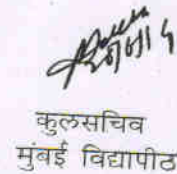 कुलसचिव
मुंबई विद्यापीठ